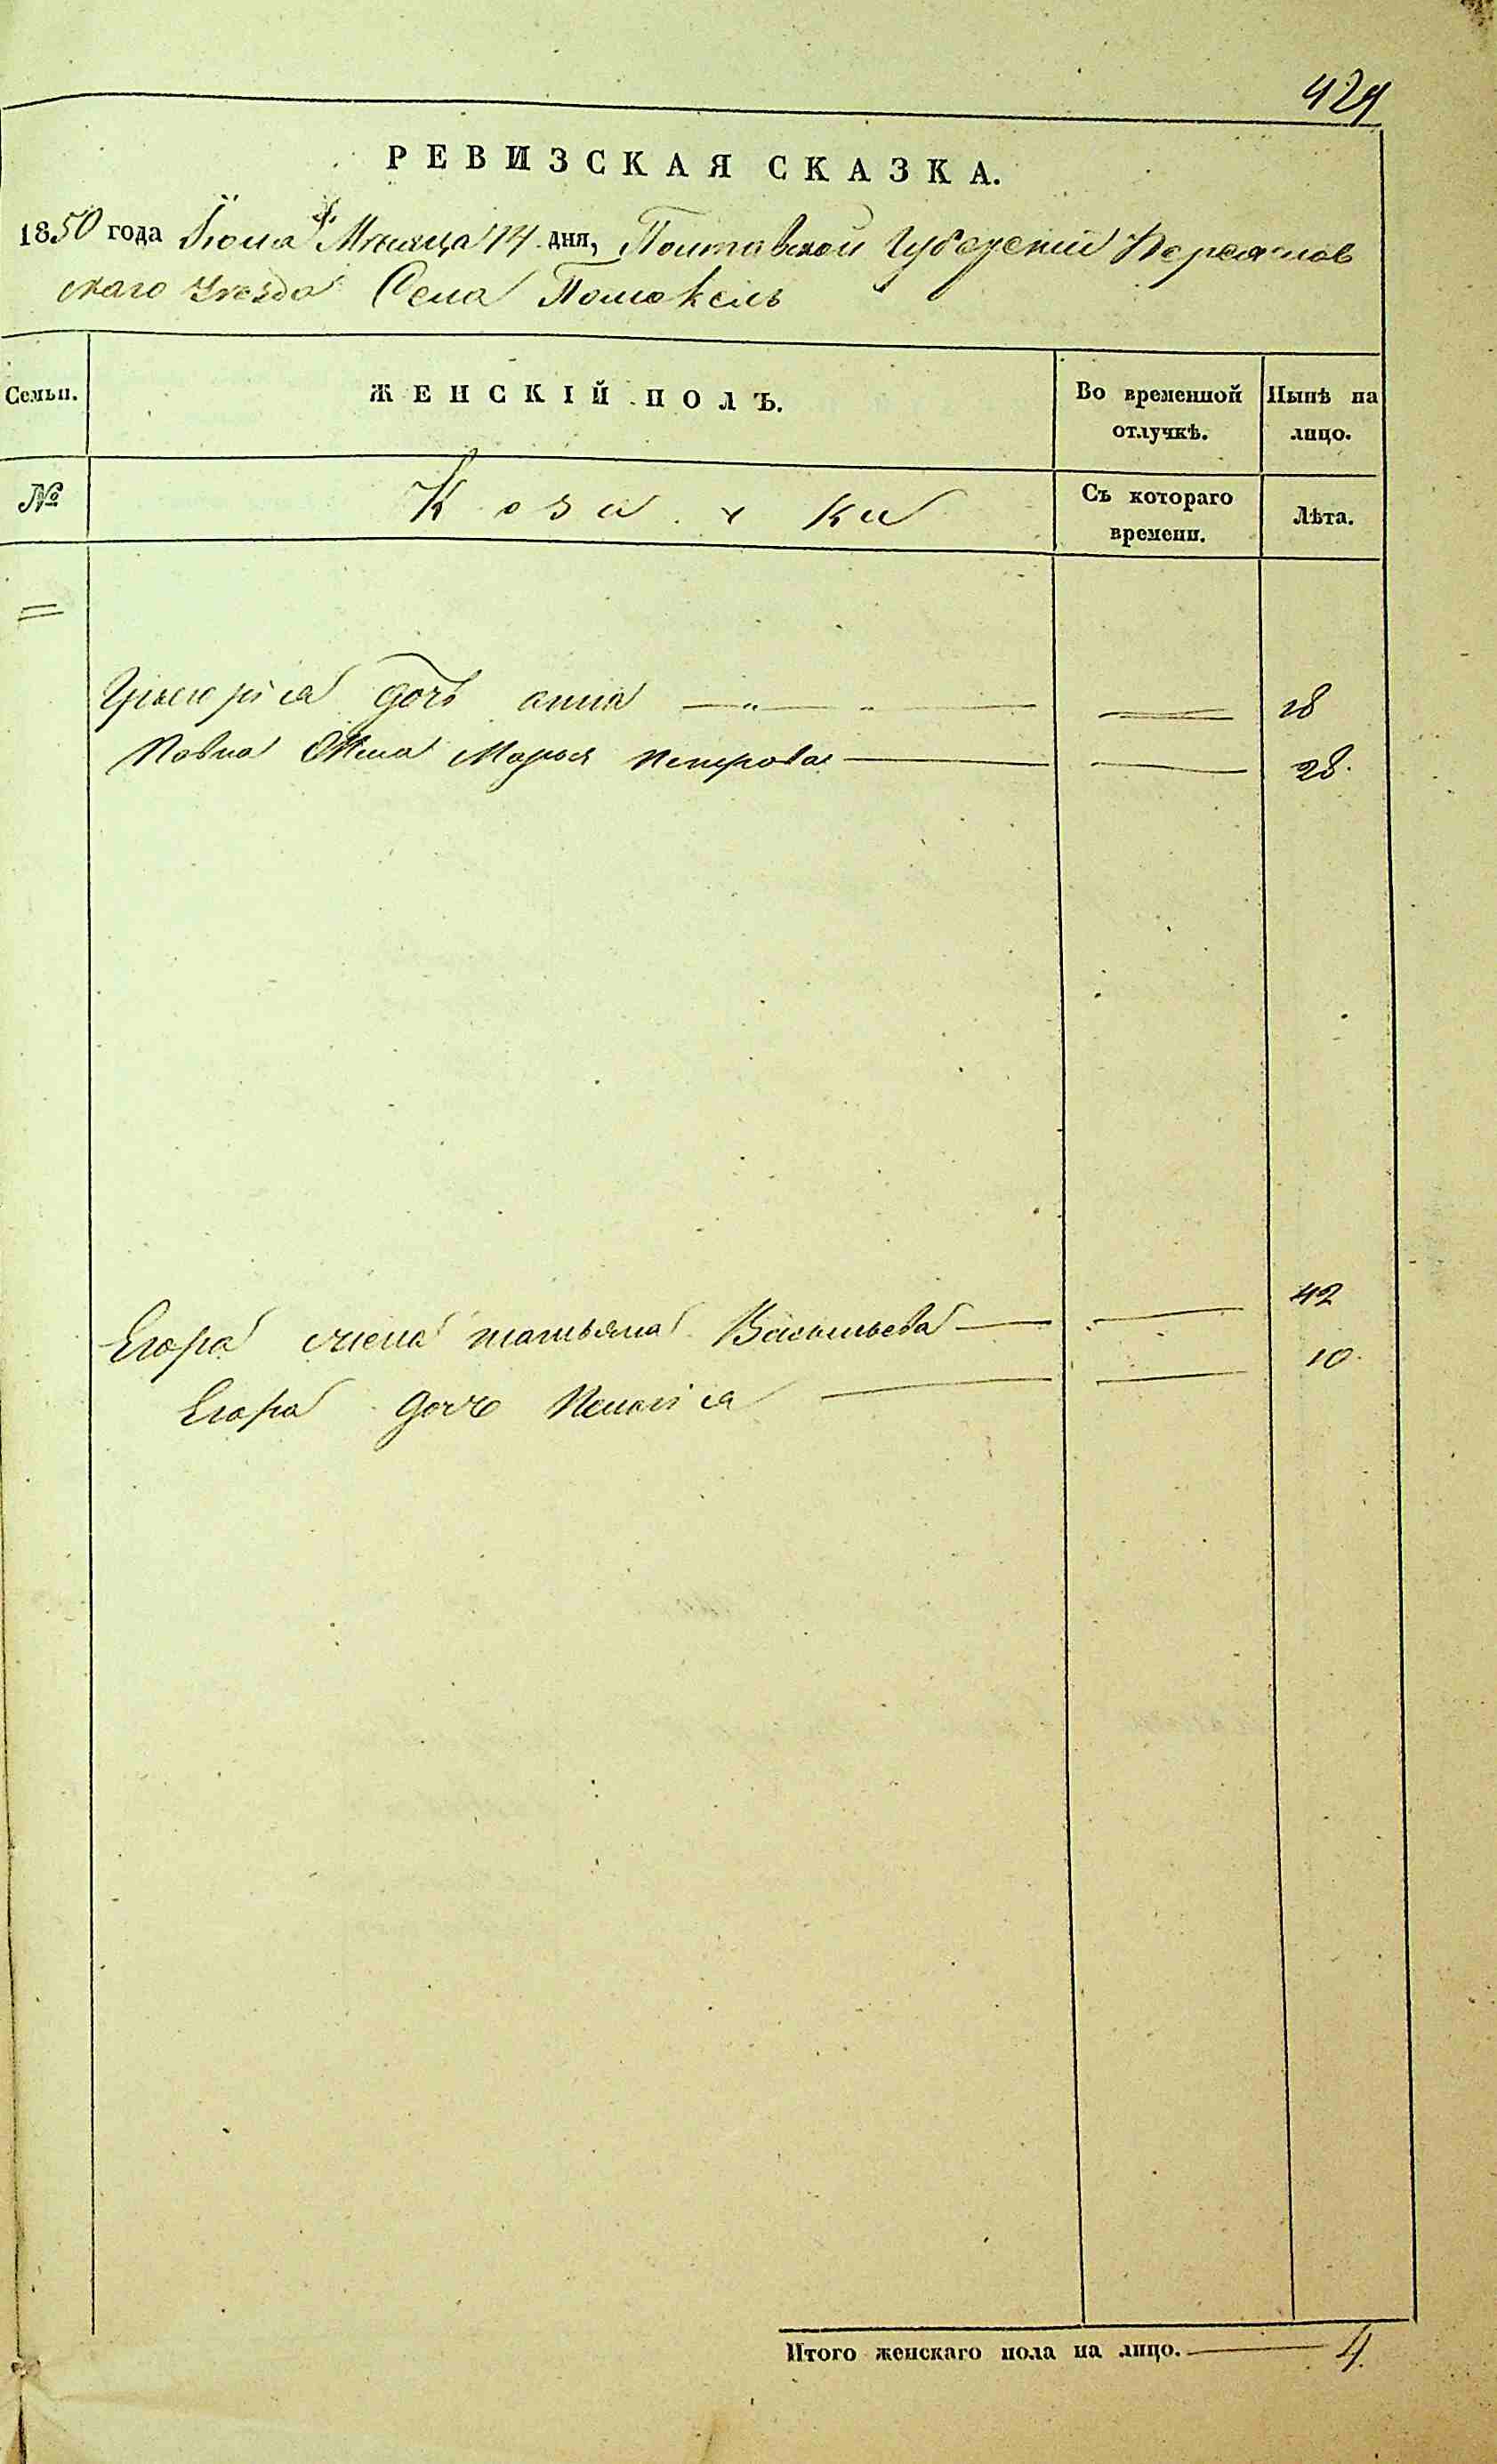 429
РЕВИЗСКАЯ СКАЗКА.
1850 года Іюня Мѣсяца 14 дня, Полтавской Губерніи Переяслов
скаго Уезда Села Помокель
Семьи.
ЖЕНСКІЙ ПОЛЪ.
Во временной отлучкѣ.
Нынѣ на лицо.
№
Козачки
Съ котораго времени.
Лѣта.
Григорія дочь анна 18
Павла Жена Марья Петрова 28.
Егора жена татьяна Васильева 42
Егора дочь Пелагія 10.
Итого женскаго пола на лицо. 4